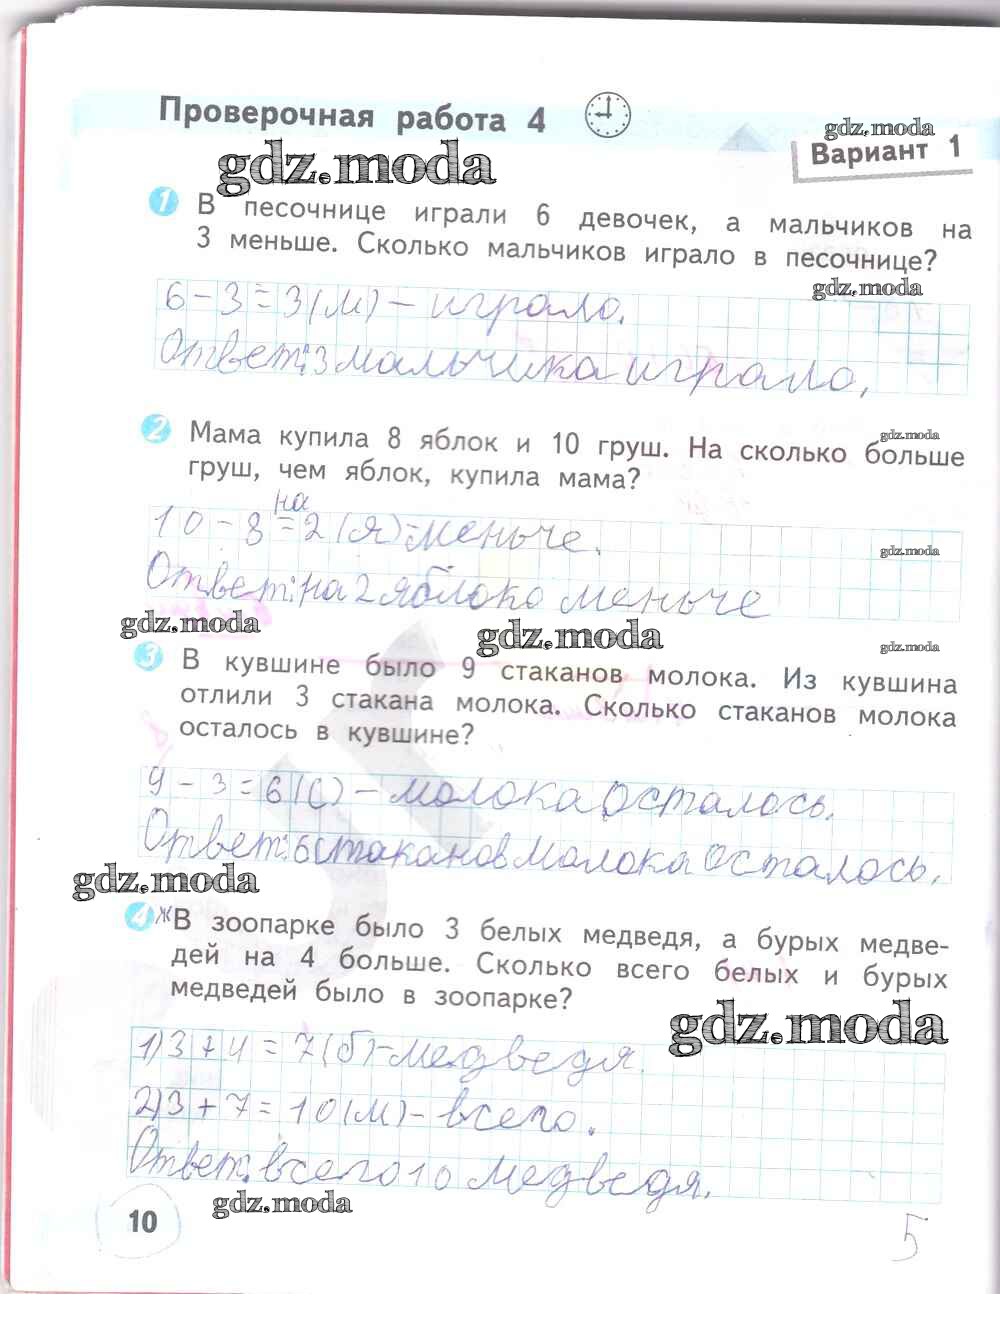 Проверочная работа 4
gdz.moda
Вариант 1
gdz.moda
1 В песочнице играли 6 девочек, а мальчиков на
3 меньше. Сколько мальчиков играло в песочнице?
gdz.moda
6-3=3(м)-играло.
Ответ:3 мальчика играло.
2 Мама купила 8 яблок и 10 груш. На сколько больше
gdz.moda
груш, чем яблок, купила мама?
на
10-8=2(я)-меньче.
gdz.moda
Ответ:на 2 яблоко меньче
gdz.moda
gdz.moda
gdz.moda
3 В кувшине было 9 стаканов молока. Из кувшина
отлили 3 стакана молока. Сколько стаканов молока
осталось в кувшине?
9-3=6(с)-молока осталось.
Ответ:6 стаканов молока осталось.
gdz.moda
4 ж В зоопарке было 3 белых медведя, а бурых медве-
дей на 4 больше. Сколько всего белых и бурых
медведей было в зоопарке?
gdz.moda
1)3+4=7(б)-медведя.
2)3+7=10(м)-всего.
Ответ:всего 10 медведя.
gdz.moda
10
5